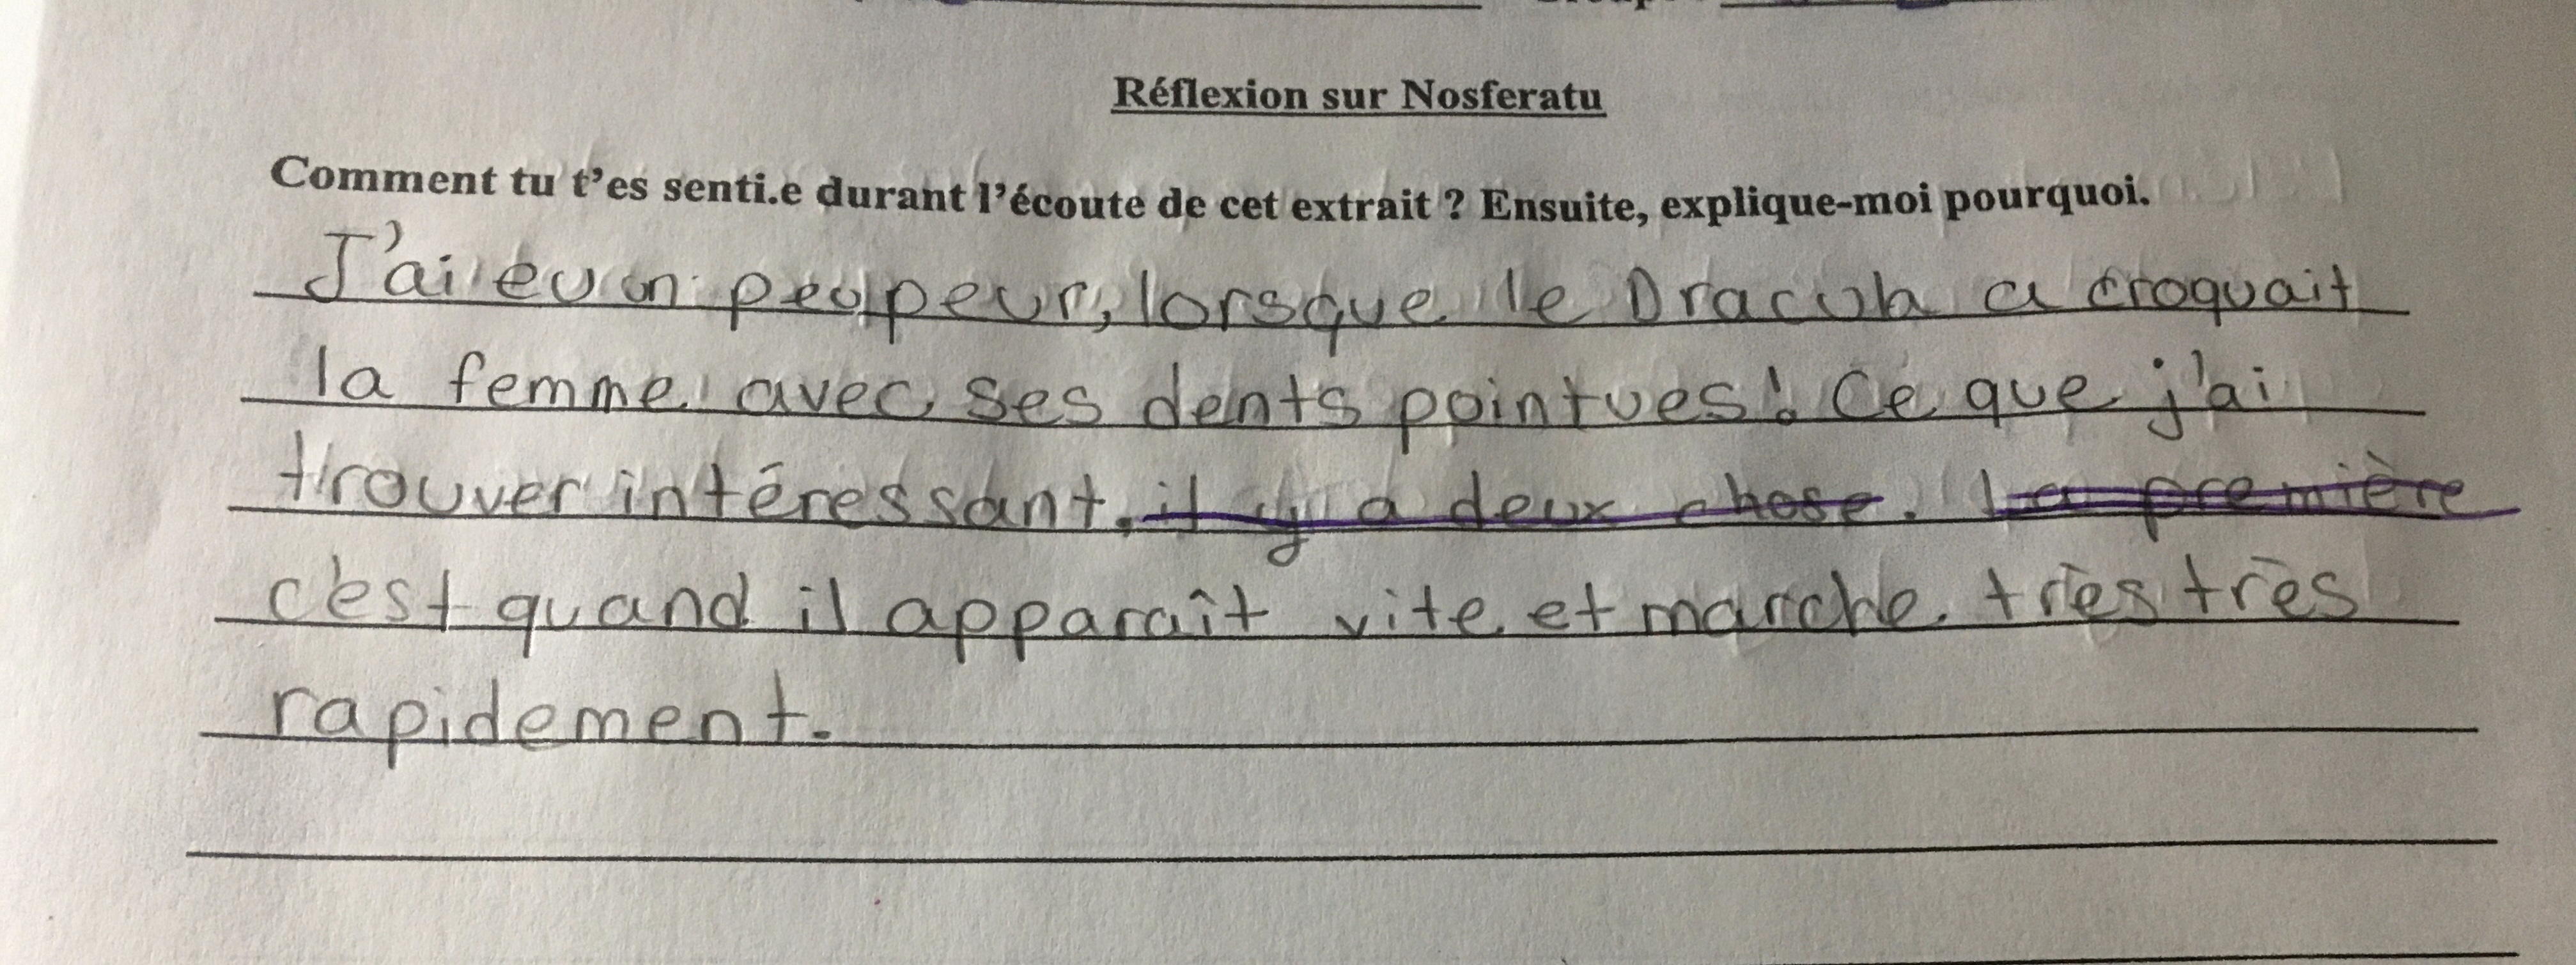 Réflexion sur Nosferatu
Comment tu t'es senti.e durant l'écoute de cet extrait ? Ensuite, explique-moi pourquoi.
J'ai eu un peu peur, lorsque le Dracula a croquait
la femme avec ses dents pointues! Ce que j'ai
trouver intéressant, il y a deux chose. La première
c'est quand il apparaît vite et marche très très
rapidement.